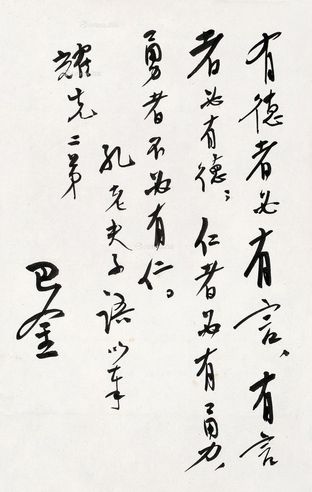 有德者必有言、有言
者必有德；仁者必有勇，
勇者不必有仁。
孔老夫子语以奉
耀先二弟
巴金